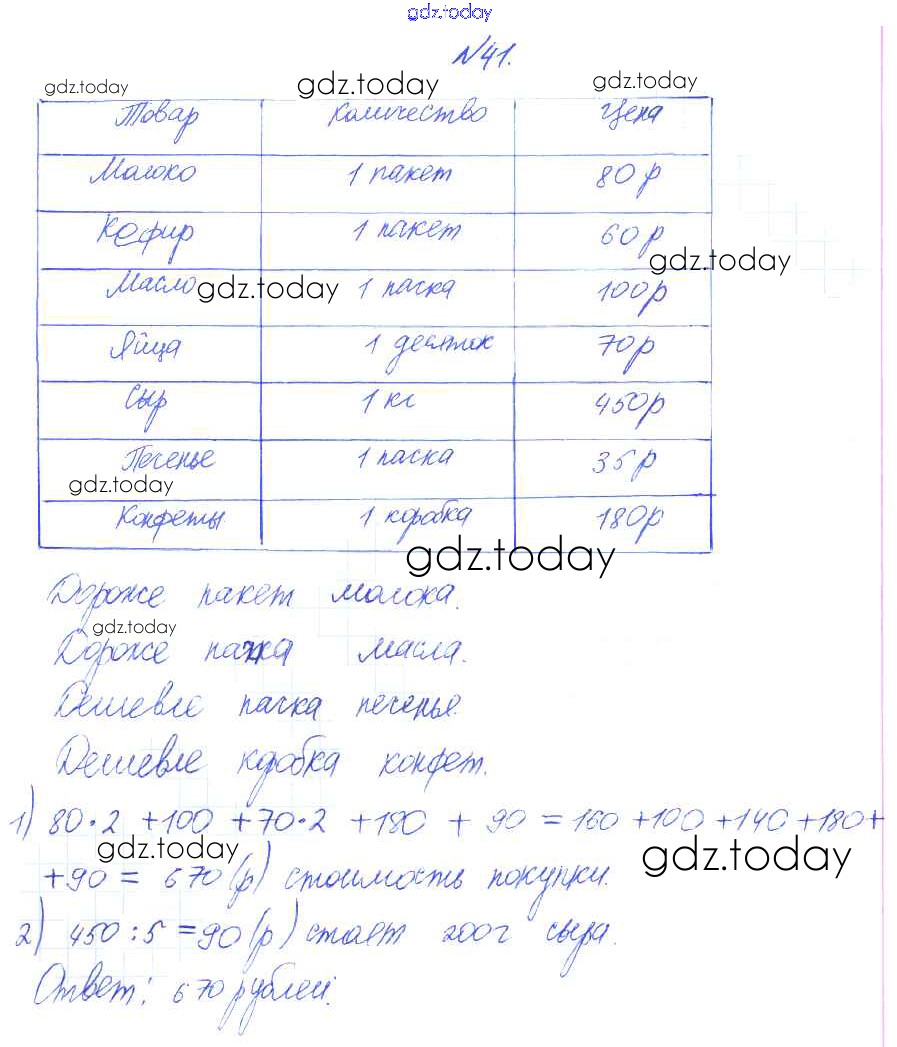 gdz.today
№41.
gdz.today gdz.today gdz.today
Товар Количество Цена
Молоко 1 пакет 80 р
Кефир 1 пакет 60 р
gdz.today
Масло 1 пачка 100р
gdz.today
Яйца 1 десяток 70р
Сыр 1 кг 450р
Печенье 1 пачка 35 р
gdz.today
Конфеты 1 коробка 180р
gdz.today
Дороже пакет молока.
gdz.today
Дороже пачка масла.
Дешевле пачка печенья.
Дешевле коробка конфет.
1) 80·2 +100 +70·2 +180 + 90 = 160 +100 +140 +180+
gdz.today gdz.today
+90 = 670 (р) стоимость покупки.
2) 450 : 5 = 90 (р) стоят 200г сыра.
Ответ: 670 рублей.